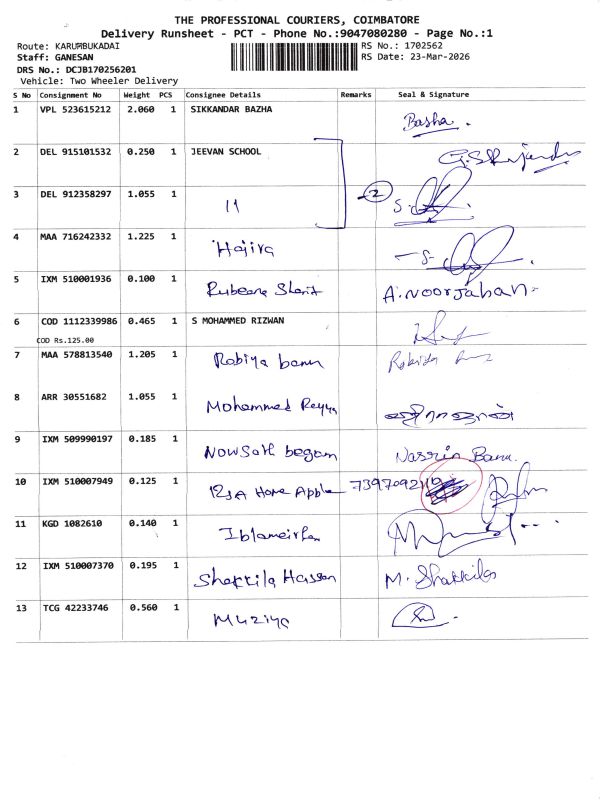 THE PROFESSIONAL COURIERS, COIMBATORE
Delivery Runsheet - PCT - Phone No.:9047080280 - Page No.:1
Route: KARUMBUKADAI RS No.: 1702562
Staff: GANESAN RS Date: 23-Mar-2026
DRS No.: DCJB170256201
Vehicle: Two Wheeler Delivery
S No Consignment No Weight PCS Consignee Details Remarks Seal & Signature
1 VPL 523615212 2.060 1 SIKKANDAR BAZHA Basha.
2 DEL 915101532 0.250 1 JEEVAN SCHOOL
3 DEL 912358297 1.055 1 11 2
4 MAA 716242332 1.225 1 Hajira
5 IXM 510001936 0.100 1 Rubeena Sherif A.Noorjahan
6 COD 1112339986 0.465 1 S MOHAMMED RIZWAN
COD Rs.125.00
7 MAA 578813540 1.205 1 Robiya banu
8 ARR 30551682 1.055 1 Mohammed
9 IXM 509990197 0.185 1 Nowsath begam Nassrin Banu.
10 IXM 510007949 0.125 1 Home Apple
11 KGD 1082610 0.140 1
12 IXM 510007370 0.195 1 Shakkila Hassan M. Shakkila
13 TCG 42233746 0.560 1 Muziya